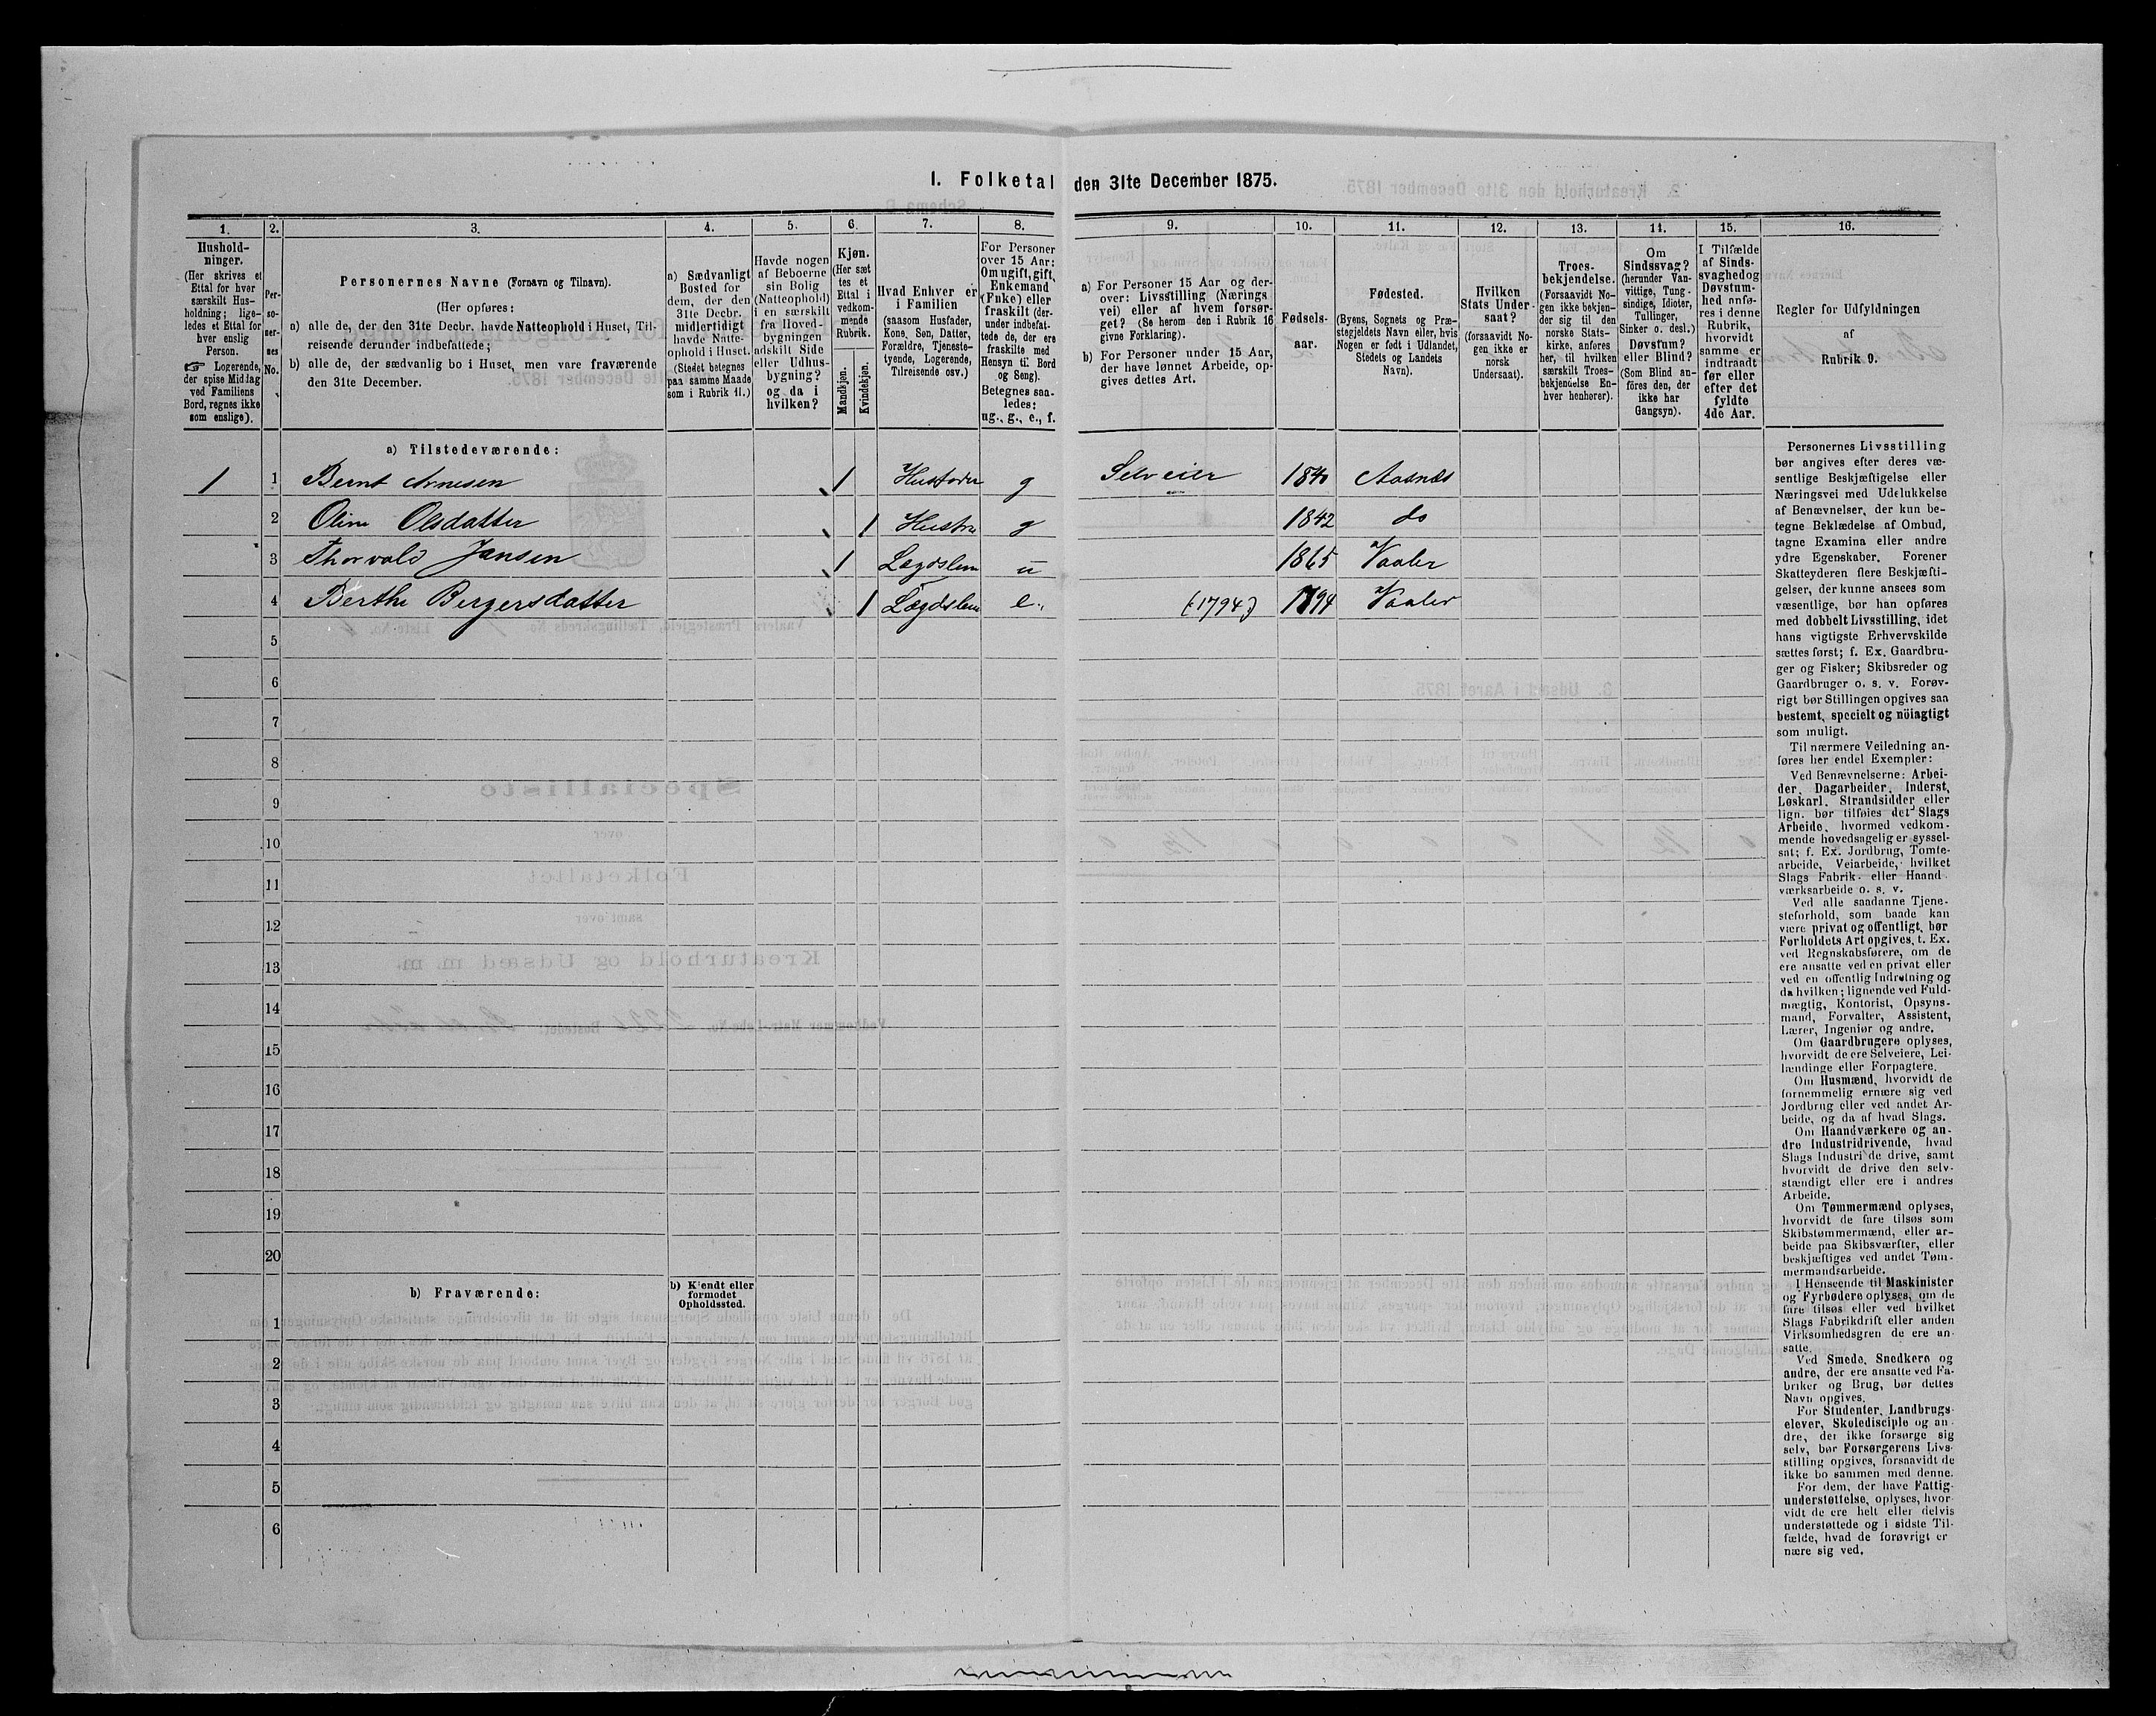 I. Folketal den 31te December 1875.
1.
Hushold-
ninger.
(Her skrives et
Ettal for hver
særskilt Hus-
holdning; lige-
ledes et Ettal for
hver enslig
Person.
☞ Logerende,
der spise Middag
ved Familiens
Bord, regnes ikke
som enslige).
2.
Per-
so-
ner-
nes
No.
3.
Personernes Navne (Fornavn og Tilnavn).
(Her opføres:
a) alle de, der den 31te Decbr. havde Natteophold i Huset, Til-
reisende derunder indbefattede;
b) alle de, der sædvanlig bo i Huset, men vare fraværende
den 31te December.
4.
a) Sædvanligt
Bosted for
dem, der den
31te Decbr.
midlertidigt
havde Natte-
ophold i Huset.
(Stedet betegnes
paa samme Maade
som i Rubrik 11.)
5.
Havde nogen
af Beboerne
sin Bolig
(Natteophold)
i en særskilt
fra Hoved-
bygningen
adskilt Side
eller Udhus-
bygning?
og da i
hvilken?
6.
Kjøn.
(Her sæt
tes et
Ettal i
vedkom-
mende
Rubrik.
Mandkjøn.
Kvindekjøn.
7.
Hvad Enhver er
i Familien
(saasom Husfader,
Kone, Søn, Datter,
Forældre, Tjeneste-
tyende, Logerende,
Tilreisende osv.)
8.
For Personer
over 15 Aar:
Om ugift, gift,
Enkemand
(Enke) eller
fraskilt (der-
under indbefat-
tede de, der ere
fraskilte med
Hensyn til Bord
og Seng).
Betegnes saa-
ledes:
ug., g., e., f.
9.
a) For Personer 15 Aar og der-
over: Livsstilling (Nærings
vei) eller af hvem forsør-
get? (Se herom den i Rubrik 16
givne Forklaring).
b) For Personer under 15 Aar,
der have lønnet Arbeide, op-
gives dettes Art.
10.
Fødsels-
aar.
11.
Fødested.
(Byens, Sognets og Præ-
stegjeldets Navn eller, hvis
Nogen er født i Udlandet,
Stedets og Landets
Navn).
12.
Hvilken
Stats Under-
saat?
(forsaavidt No-
gen ikke er
norsk
Undersaat).
13.
Troes-
bekjendelse.
(Forsaavidt No-
gen ikke bekjen-
der sig til den
norske Stats-
kirke, anføres
her, til hvilken
særskilt Troes-
bekjendelse En-
hver henhører).
14.
Om
Sindssvag?
(herunder Van-
vittige, Tung-
sindige, Idioter,
Tullinger,
Sinker o. desl.)
Døvstum?
eller Blind?
(Som Blind an-
føres den, der
ikke har
Gangsyn).
15.
I Tilfælde
af Sinds-
svaghed og
Døvstum-
hed anfø-
res i denne
Rubrik,
hvorvidt
samme er
indtraadt
før eller
efter det
fyldte
4de Aar.
16.
Regler for Udfyldningen
af
Rubrik 9.
a) Tilstedeværende:
1 1 Bernt Arnesen 1 Husfader g Selveier 1840 Aasnæs
2 Oline Olsdatter 1 Hustru g 1842 do
3 Thorvald Jansen 1 Lægdslem u 1865 Vaaler
4 Berthe Bergersdatter 1 Lægdslem e. (:1794:) 1794 Vaaler
5
6
7
8
9
10
11
12
13
14
15
16
17
18
19
20
b) Fraværende:
b) Kjendt eller
formodet
Opholdssted.
1
2
3
4
5
6
Personernes Livsstilling
bør angives efter deres væ-
sentlige Beskjæftigelse eller
Næringsvei med Udelukkelse
af Benævnelser, der kun be-
tegne Beklædelse af Ombud,
tagne Examina eller andre
ydre Egenskaber. Forener
Skatteyderen flere Beskjæfti-
gelser, der kunne ansees som
væsentlige, bør han opføres
med dobbelt Livsstilling, idet
hans vigtigste Erhvervskilde
sættes først; f. Ex. Gaardbru-
ger og Fisker; Skibsreder og
Gaardbruger o. s. v. Forøv-
rigt bør Stillingen opgives saa
bestemt, specielt og nöiagtigt
som muligt.
Til nærmere Veiledning an-
føres her endel Exempler:
Ved Benævnelserne: Arbei-
der, Dagarbeider, Inderst,
Løskarl, Strandsidder eller
lign. bør tilføies det Slags
Arbeide, hvormed vedkom-
mende hovedsagelig er syssel-
sat; f. Ex. Jordbrug, Tomte-
arbeide, Veiarbeide, hvilket
Slags Fabrik- eller Haand
værksarbeide o. s. v.
Ved alle saadanne Tjene-
steforhold, som baade kan
være privat og offentligt, bør
Forholdets Art opgives, t. Ex.
ved Regnskabsførere, om de
ere ansatte ved en privat eller
ved en offentlig Indretning og
da hvilken; lignende ved Fuld-
mægtig, Kontorist, Opsyns-
mand, Forvalter, Assistent,
Lærer, Ingeniør og andre.
Om Gaardbrugere oplyses,
hvorvidt de ere Selveiere, Lei-
lændinge eller Forpagtere.
Om Husmænd, hvorvidt de
fornemmelig ernære sig ved
Jordbrug eller ved andet Ar-
beide, og da af hvad Slags.
Om Haandværkere og an-
dre Industridrivende, hvad
Slags Industri de drive, samt
hvorvidt de drive den selv-
stændigt eller ere i andres
Arbeide.
Om Tømmermænd oplyses,
hvorvidt de fare tilsøs som
Skibstømmermænd, eller ar-
beide paa Skibsværfter, eller
beskjæftiges ved andet Tøm-
mermandsarbeide.
I Henseende til Maskinister
og Fyrbødere oplyses, om de
fare tilsøs eller ved hvilket
Slags Fabrikdrift eller anden
Virksomhedsgren de ere an-
satte.
Ved Smede, Snedkere og
andre, der ere ansatte ved Fa-
briker og Brug, bør dettes
Navn opgives.
For Studenter, Landbrugs
elever, Skoledisciple og an-
dre, der ikke forsørge sig
selv, bør Forsørgerens Livs-
stilling opgives, forsaavidt de
ikke bo sammen med denne.
For dem, der have Fattig-
understøttelse, oplyses, hvor-
vidt de ere helt eller delvis
understøttede og i sidste Til-
fælde, hvad de forøvrigt er
nære sig ved.